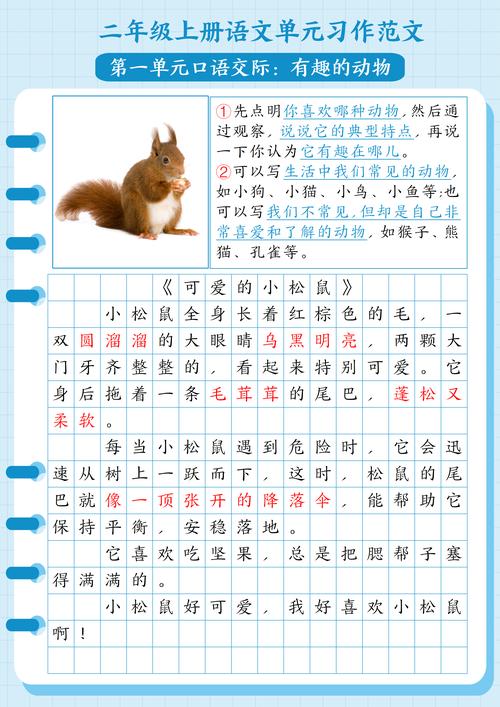 二年级上册语文单元习作范文
第一单元口语交际：有趣的动物
①先点明你喜欢哪种动物，然后通
过观察，说说它的典型特点，再说
一下你认为它有趣在哪儿。
②可以写生活中我们常见的动物，
如小狗、小猫、小鸟、小鱼等；也
可以写我们不常见，但却是自己非
常喜爱和了解的动物，如猴子、熊
猫、孔雀等。
《可爱的小松鼠》
小松鼠全身长着红棕色的毛，一
双圆溜溜的大眼睛乌黑明亮，两颗大
门牙齐整整的，看起来特别可爱。它
身后拖着一条毛茸茸的尾巴，蓬松又
柔软。
每当小松鼠遇到危险时，它会迅
速从树上一跃而下，这时，松鼠的尾
巴就像一顶张开的降落伞，能帮助它
保持平衡，安稳落地。
它喜欢吃坚果，总是把腮帮子塞
得满满的。
小松鼠好可爱，我好喜欢小松鼠
啊！